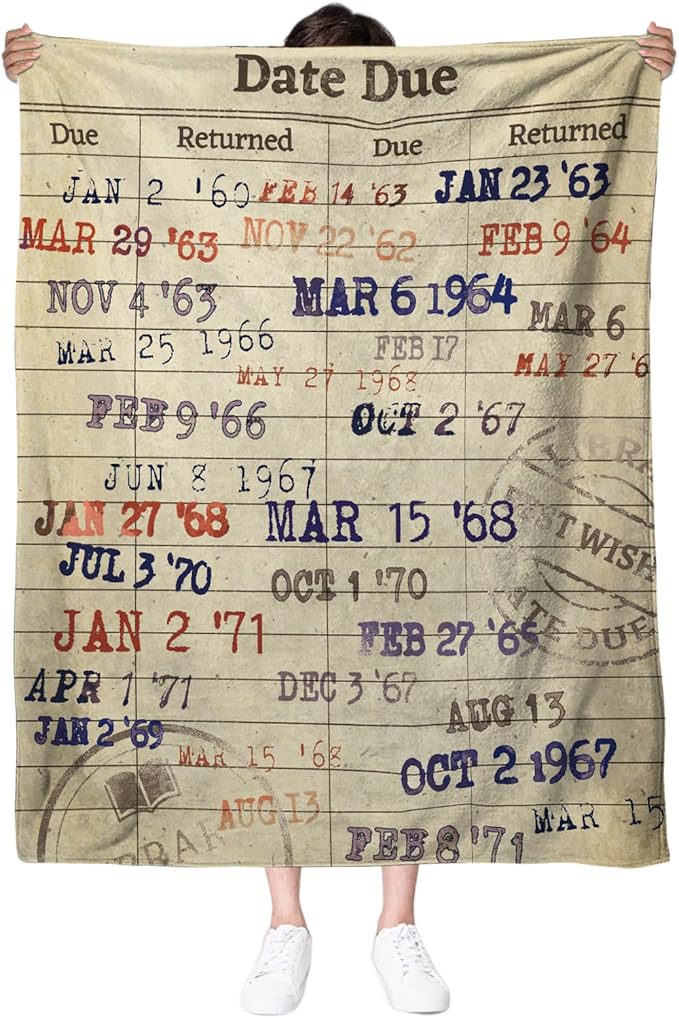 Date Due
Due Returned Due Returned
JAN 2 '60 FEB 14 '63 JAN 23 '63
MAR 29 '63 NOV 22 '62 FEB 9 '64
NOV 4 '63 MAR 6 1964 MAR 6
MAR 25 1966 FEB 17
MAY 27 1968 MAY 27 '6
FEB 9 '66 OCT 2 '67
LIBRA
JUN 8 1967
JAN 27 '68 MAR 15 '68
EST WISH
JUL 3 '70 OCT 1 '70
ATE DUE
JAN 2 '71 FEB 27 '65
APR 1 '71 DEC 3 '67
AUG 13
JAN 2 '69
MAR 15 '68 OCT 2 1967
AUG 13 MAR 15
BRAR
FEB 8 '71